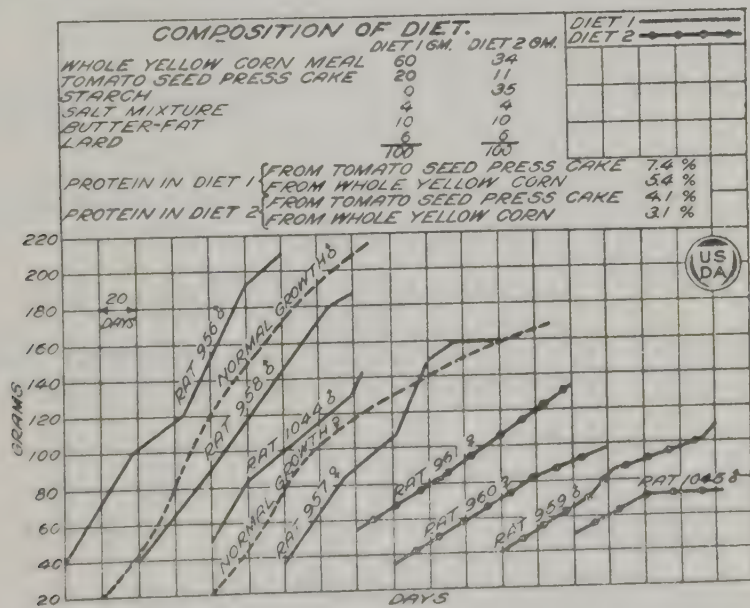 COMPOSITION OF DIET.
DIET 1 GM. DIET 2 GM.
WHOLE YELLOW CORN MEAL 60 34
TOMATO SEED PRESS CAKE 20 11
STARCH 0 35
SALT MIXTURE 4 4
BUTTER-FAT 10 10
LARD 6 6
100 100
DIET 1
DIET 2
PROTEIN IN DIET 1 { FROM TOMATO SEED PRESS CAKE 7.4 %
FROM WHOLE YELLOW CORN 5.4 %
PROTEIN IN DIET 2 { FROM TOMATO SEED PRESS CAKE 4.1 %
FROM WHOLE YELLOW CORN 3.1 %
US
DA
220
200
180
160
140
120
100
80
60
40
20
GRAMS
20
DAYS
RAT 956
NORMAL GROWTH
RAT 958
RAT 1044
NORMAL GROWTH
RAT 957
RAT 961
RAT 960
RAT 959
RAT 1045
DAYS